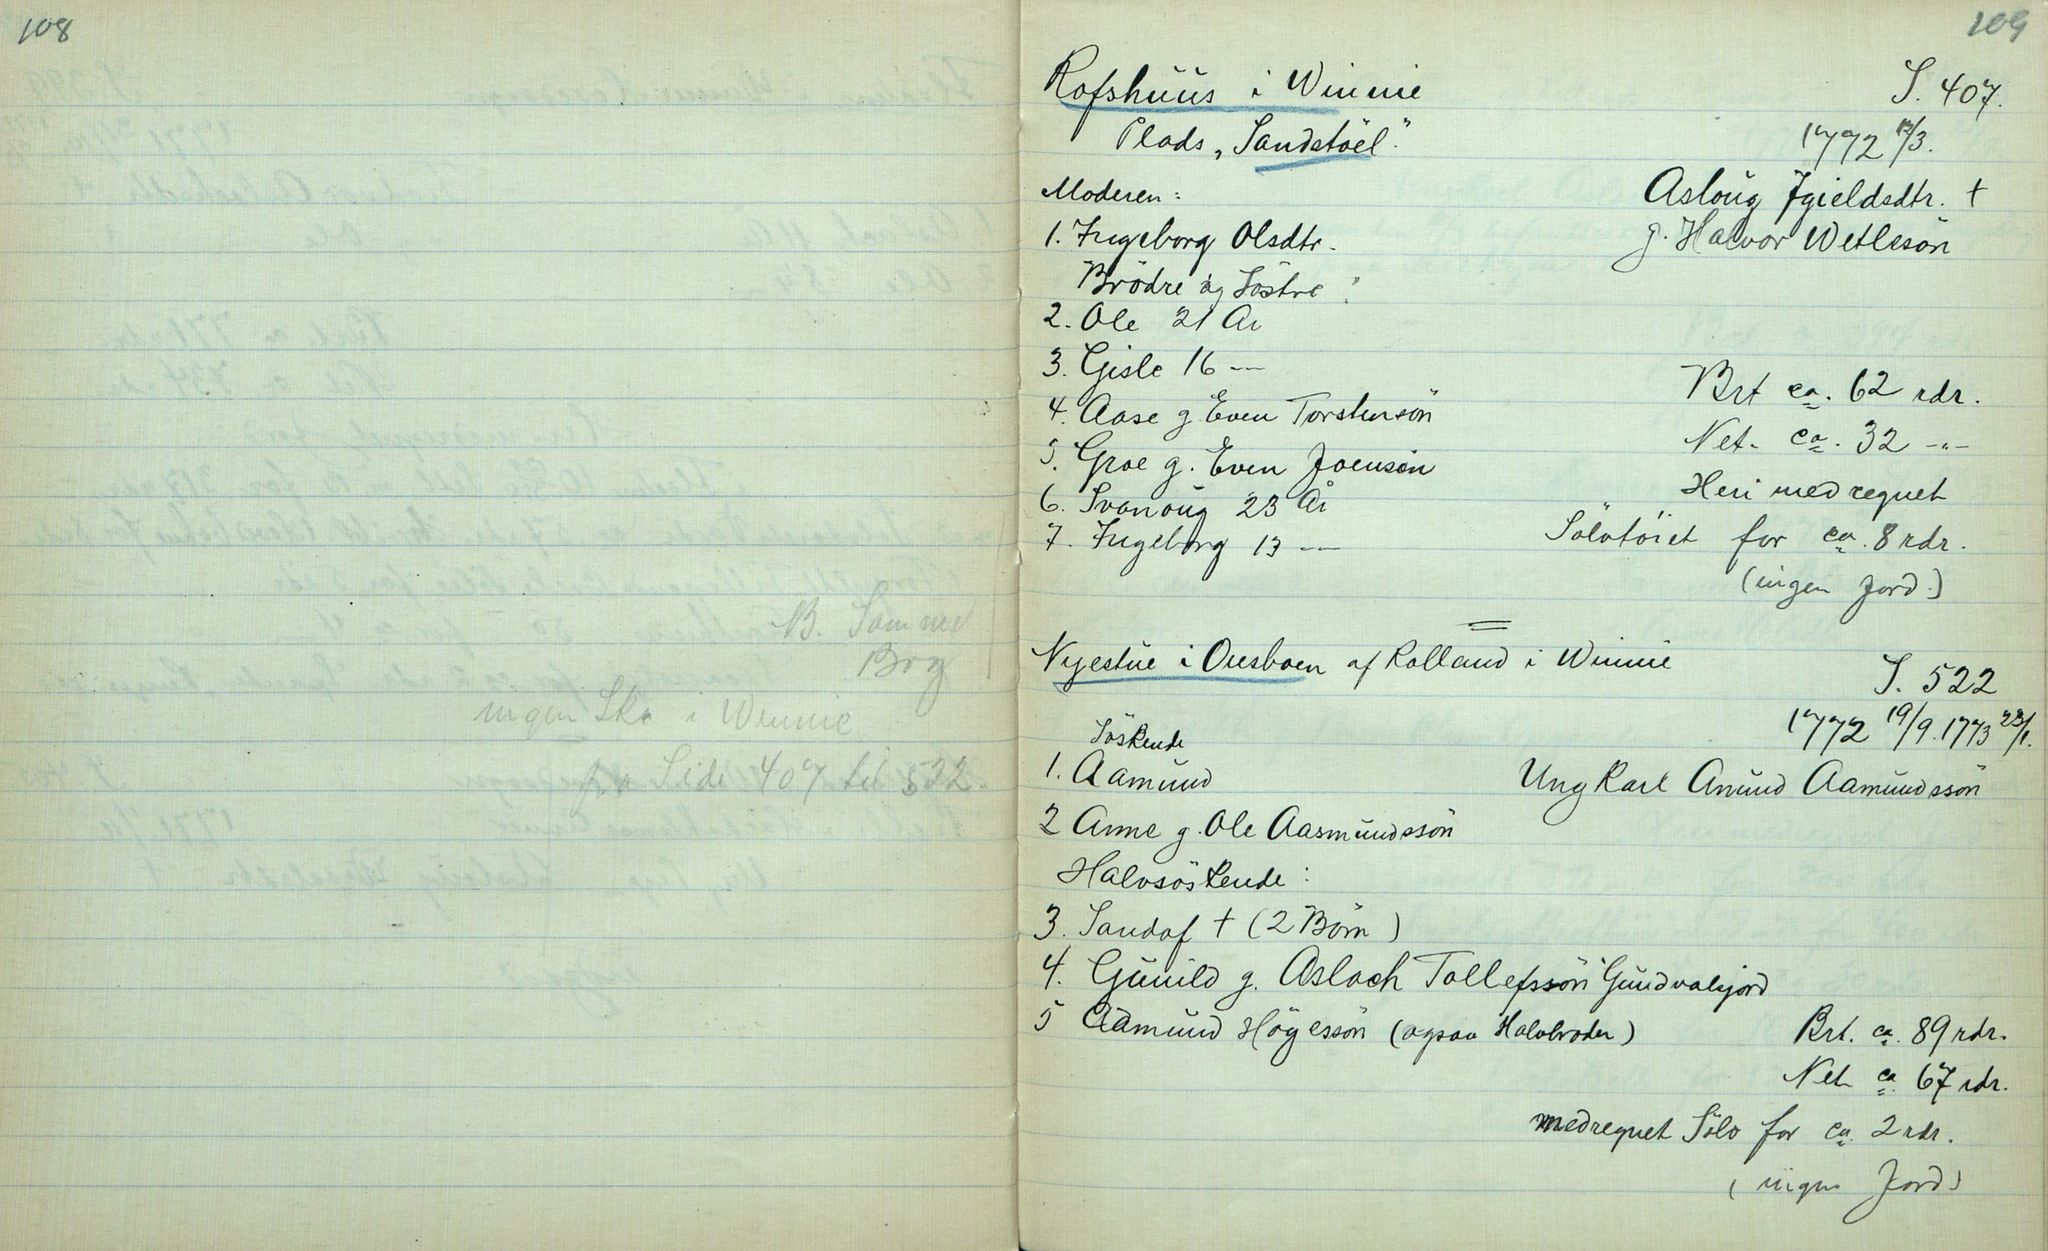 108
B. Samme
Bog
ingen Sk. i Winnie
fra Side 407 til 522.
109
Rofshuus i Winnie
S. 407.
Plads „Sandstöel".
1772 12/3.
Moderen:
Asloug Jgieldsdtr. †
1. Ingeborg Olsdtr.
g. Halvor Wetlesön
Brödre og Söstre:
2. Ole 21 År
3. Gisle 16 —
Brt ca. 62 rdr.
4. Aase g. Even Torstensön
Net. ca. 32 -"-
5. Groe g. Even Joensön
Heri medregnet
6. Svanoug 23 År
Sölvtöiet for ca. 8 rdr.
7. Ingeborg 13 —
(ingen Jord.)
Nyestue i Ousboen af Rolland i Winnie
S. 522
1772 19/9. 1773 23/1.
Söskende
1. Aamund
Ung Karl Anund Aamundssön
2 Anne g. Ole Aasmundssön
Halvsöskende:
3. Sandof † (2 Börn)
4. Gunild g. Aslach Tollefssön Gundvalsjord
5 Aamund Högessön (ogsaa Halvbroder)
Brt. ca. 89 rdr.
Net ca. 67 rdr.
medregnet Sölv for ca. 2 rdr.
(ingen Jord)